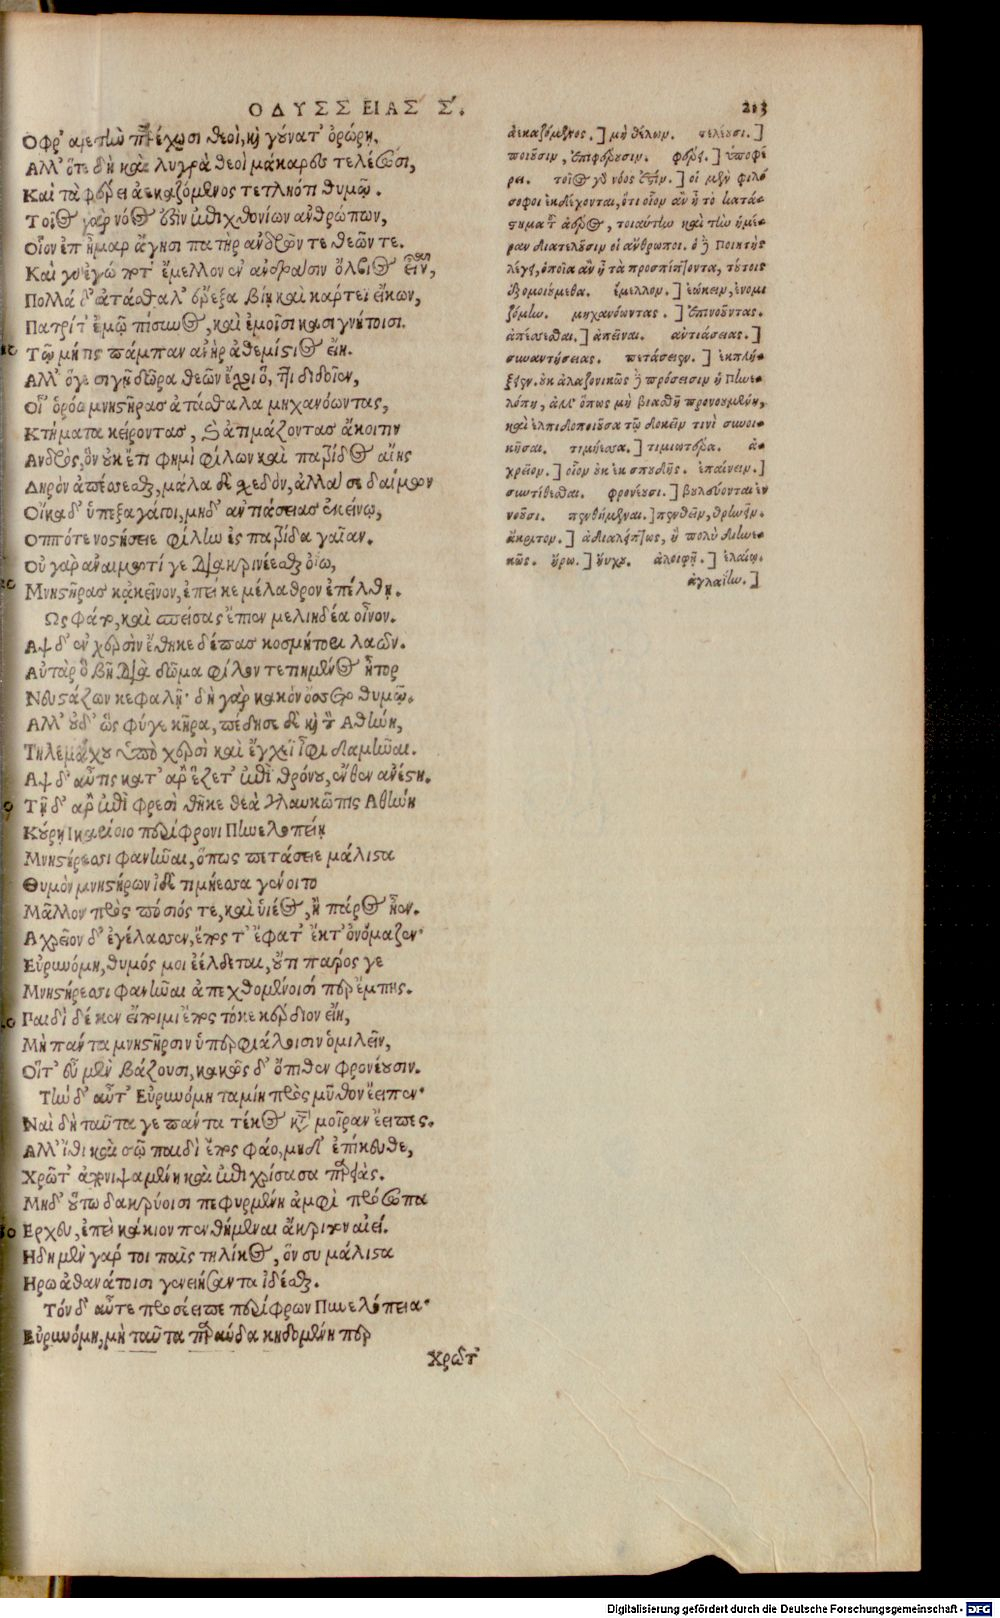 ΟΔΥΣΣΕΙΑΣ Σ. 213
Οφρ' ἀρετὴν παρέχωσι θεοὶ, καὶ γούνατ' ὀρώρῃ.
Αλλ' ὅτε δὴ καὶ λυγρὰ θεοὶ μάκαρες τελέσωσι,
Καὶ τὰ φέρει ἀεκαζόμενος τετληότι θυμῷ.
Τοῖος γὰρ νόος ἐστὶν ἐπιχθονίων ἀνθρώπων,
Οἷον ἐπ' ἦμαρ ἄγησι πατὴρ ἀνδρῶν τε θεῶν τε.
Καὶ γὰρ ἐγώ ποτ' ἔμελλον ἐν ἀνδράσιν ὄλβιος εἶναι,
Πολλὰ δ' ἀτάσθαλ' ἔρεξα βίῃ καὶ κάρτεϊ εἴκων,
Πατρί τ' ἐμῷ πίσυνος, καὶ ἐμοῖσι κασιγνήτοισι.
Τῷ μήτις πάμπαν ἀνὴρ ἀθεμίστιος εἴη.
Αλλ' ὅγε σιγῇ δῶρα θεῶν ἔχοι ὅ, ττι διδοῖεν,
Οἷ' ὁρόω μνηστῆρας ἀτάσθαλα μηχανόωντας,
Κτήματα κείροντας, καὶ ἀτιμάζοντας ἄκοιτιν
Ανδρὸς, ὃν οὐκ ἔτι φημὶ φίλων καὶ πατρίδος αἴης
Δηρὸν ἀπέσσεσθαι, μάλα δὲ σχεδόν, ἀλλά σε δαίμων
Οἴκαδ' ὑπεξαγάγοι, μηδ' ἀντιάσειας ἐκείνῳ,
Οππότε νοστήσειε φίλην ἐς πατρίδα γαῖαν.
Οὐ γὰρ ἀναιμωτί γε διακρινέεσθαι ὀΐω,
Μνηστῆρας κἀκεῖνον, ἐπεί κε μέλαθρον ἐπέλθῃ.
Ως φάτο, καὶ σπείσας ἔπιεν μελιηδέα οἶνον.
Αψ δ' ἐν χερσὶν ἔθηκε δέπας κοσμήτορι λαῶν.
Αὐτὰρ ὁ βῆ διὰ δῶμα φίλον τετιημένος ἦτορ
Νευστάζων κεφαλῇ· δὴ γὰρ κακὸν ὄσσετο θυμῷ.
Αλλ' οὐδ' ὣς φύγε κῆρα, πέδησε δὲ καὶ τὸν Αθήνη,
Τηλεμάχου ὑπὸ χερσὶ καὶ ἔγχεϊ ἶφι δαμῆναι.
Αψ δ' αὖτις κατ' ἄρ' ἕζετ' ἐπὶ θρόνου, ἔνθεν ἀνέστη.
Τῇ δ' ἄρ' ἐπὶ φρεσὶ θῆκε θεὰ γλαυκῶπις Αθήνη
Κούρῃ Ικαρίοιο περίφρονι Πηνελοπείῃ
Μνηστήρεσσι φανῆναι, ὅπως πετάσειε μάλιστα
Θυμὸν μνηστήρων ἰδὲ τιμήεσσα γένοιτο
Μᾶλλον πρὸς πόσιός τε, καὶ υἱέος, ἢ πάρος ἦεν.
Αχρεῖον δ' ἐγέλασσεν, ἔπος τ' ἔφατ' ἔκ τ' ὀνόμαζεν·
Εὐρυνόμη, θυμός μοι ἐέλδεται, οὔτι πάρος γε
Μνηστήρεσσι φανῆναι ἀπεχθομένοισί περ ἔμπης.
Παιδὶ δέ κεν εἴποιμι ἔπος τό κε κέρδιον εἴη,
Μὴ πάντα μνηστῆρσιν ὑπερφιάλοισιν ὁμιλεῖν,
Οἵτ' εὖ μὲν βάζουσι, κακῶς δ' ὄπιθεν φρονέουσιν.
Τὴν δ' αὖτ' Εὐρυνόμη ταμίη πρὸς μῦθον ἔειπεν·
Ναὶ δὴ ταῦτά γε πάντα τέκος κατὰ μοῖραν ἔειπες.
Αλλ' ἴθι καὶ σῷ παιδὶ ἔπος φάο, μηδ' ἐπίκευθε,
Χρῶτ' ἀπονιψαμένη καὶ ἐπιχρίσασα παρειάς.
Μηδ' οὕτω δακρύοισι πεφυρμένη ἀμφὶ πρόσωπα
Ερχευ, ἐπεὶ κάκιον πενθήμεναι ἄκριτον αἰεί.
Ηδη μὲν γάρ τοι παῖς τηλίκος, ὃν σὺ μάλιστα
Ηρῶ ἀθανάτοισι γενειήσαντα ἰδέσθαι.
Τὸν δ' αὖτε προσέειπε περίφρων Πηνελόπεια·
Εὐρυνόμη, μὴ ταῦτα παραύδα κηδομένη περ
Χρῶτ'
ἀεκαζόμενος.] μὴ θέλων. τελέωσι.]
ποιῶσιν, ἐπιφέρωσιν. φέρει.] ὑποφέ
ρει. τοῖος γὰρ νόος ἐστίν.] οἱ μὲν φιλό
σοφοι ἐκδέχονται, ὅτι οἷον ἂν ᾖ τὸ κατά-
στημα τοῦ ἀέρος, τοιαύτην καὶ τὴν ἡμέ-
ραν διατελοῦσιν οἱ ἄνθρωποι. ὁ δὲ ποιητὴς
λέγει, ὁποῖα ἂν ᾖ τὰ προσπίπτοντα, τούτοις
ἐξομοιούμεθα. ἔμελλον.] ἐῴκειν, ἐνομι
ζόμην. μηχανόωντας.] ἐπινοοῦντας.
ἀπέσσεσθαι.] ἀπεῖναι. ἀντιάσειας.]
συναντήσειας. πετάσειεν.] ἐκπλή-
ξειεν. οὐκ ἀλαζονικῶς δὲ πρόσεισιν ἡ Πηνε-
λόπη, ἀλλ' ὅπως μὴ βιασθῇ προνοουμένη,
καὶ ἐλπιδοποιοῦσα τῷ δοκεῖν τινὶ συνοι-
κῆσαι. τιμήεσσα.] τιμιωτέρα. ἀ-
χρεῖον.] οἷον οὐκ ἐκ σπουδῆς. ἐπαίνειν.]
συντίθεσθαι. φρονέουσι.] βουλεύονται ἐν
νοοῦσι. πενθήμεναι.] πενθεῖν, θρηνεῖν.
ἄκριτον.] ἀδιαλείπτως, ἢ πολὺ διηνε-
κῶς. ἤρω.] ηὔχου. ἀλοιφῇ.] ἐλαίῳ.
ἀγλαΐην.]
Digitalisierung gefördert durch die Deutsche Forschungsgemeinschaft - DFG